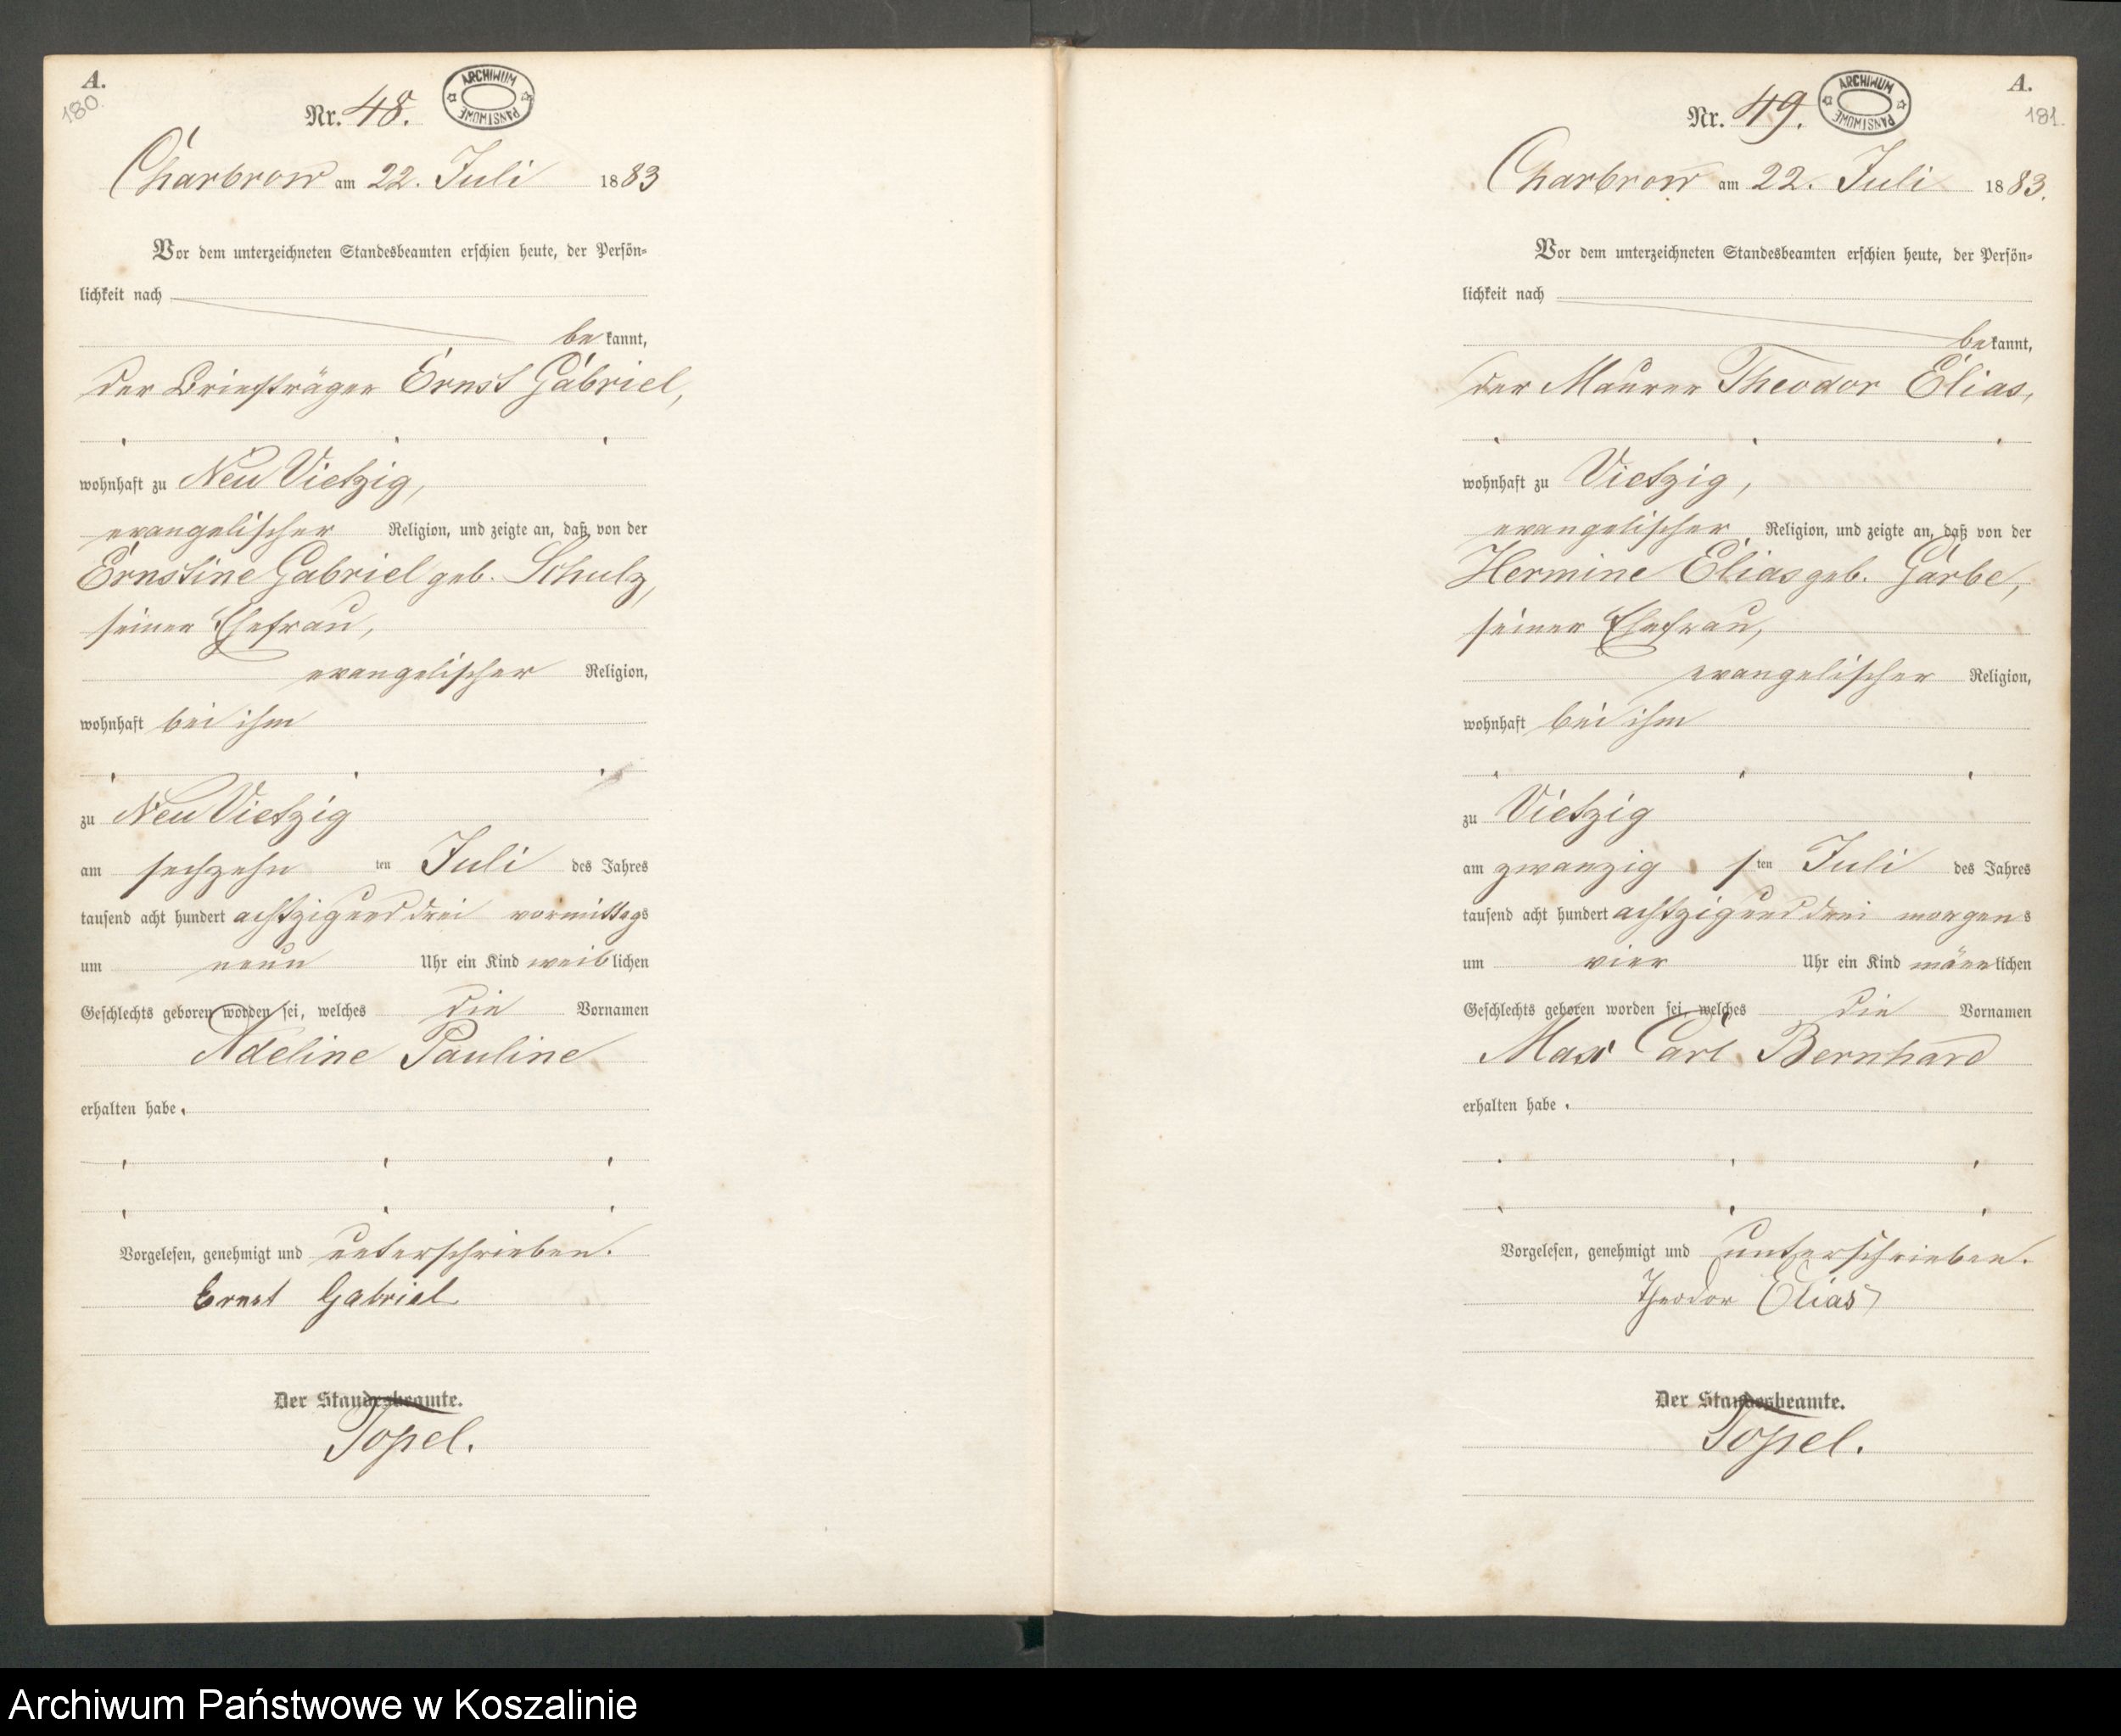 A.
180.
Nr. 48.
ARCHIWUM PAŃSTWOWE
Charbrow am 22. Juli 1883
Vor dem unterzeichneten Standesbeamten erschien heute, der Persön-
lichkeit nach
bekannt,
der Briefträger Ernst Gabriel,
wohnhaft zu Neu Vietzig,
evangelischer Religion, und zeigte an, daß von der
Ernstine Gabriel geb. Schulz,
seiner Ehefrau,
evangelischer Religion,
wohnhaft bei ihm
zu Neu Vietzig
am sechzehn ten Juli des Jahres
tausend acht hundert achtzig und drei vormittags
um neun Uhr ein Kind weiblichen
Geschlechts geboren worden sei, welches die Vornamen
Adeline Pauline
erhalten habe.
Vorgelesen, genehmigt und unterschrieben.
Ernst Gabriel
Der Standesbeamte.
Topel.
A.
181.
Nr. 49.
ARCHIWUM PAŃSTWOWE
Charbrow am 22. Juli 1883.
Vor dem unterzeichneten Standesbeamten erschien heute, der Persön-
lichkeit nach
bekannt,
der Maurer Theodor Elias,
wohnhaft zu Vietzig,
evangelischer Religion, und zeigte an, daß von der
Hermine Elias geb. Garbe,
seiner Ehefrau,
evangelischer Religion,
wohnhaft bei ihm
zu Vietzig
am zwanzig sten Juli des Jahres
tausend acht hundert achtzig und drei morgens
um vier Uhr ein Kind männlichen
Geschlechts geboren worden sei, welches die Vornamen
Max Carl Bernhard
erhalten habe.
Vorgelesen, genehmigt und unterschrieben.
Theodor Elias
Der Standesbeamte.
Topel.
Archiwum Państwowe w Koszalinie